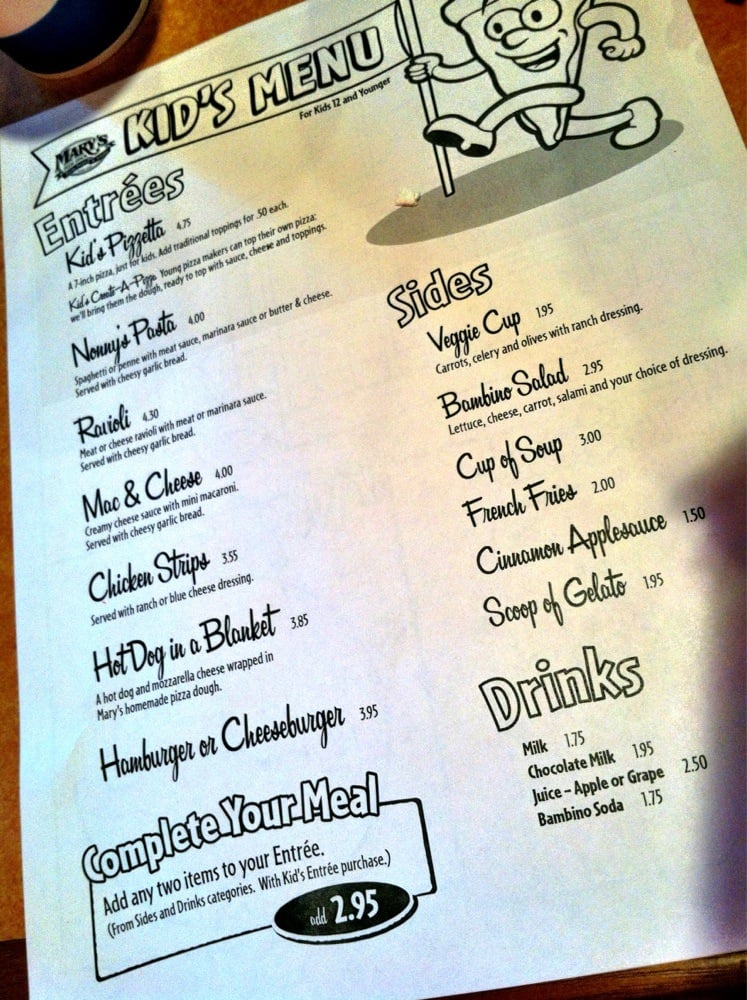 MARY'S
KID'S MENU
For Kids 12 and Younger
Entrées
Kid's Pizzetta 4.75
A 7-inch pizza, just for kids. Add traditional toppings for .50 each.
Kid's Create-A-Pizza Young pizza makers can top their own pizza:
we'll bring them the dough, ready to top with sauce, cheese and toppings.
Nonny's Pasta 4.00
Spaghetti or penne with meat sauce, marinara sauce or butter & cheese.
Served with cheesy garlic bread.
Ravioli 4.30
Meat or cheese ravioli with meat or marinara sauce.
Served with cheesy garlic bread.
Mac & Cheese 4.00
Creamy cheese sauce with mini macaroni.
Served with cheesy garlic bread.
Chicken Strips 3.55
Served with ranch or blue cheese dressing.
Hot Dog in a Blanket 3.85
A hot dog and mozzarella cheese wrapped in
Mary's homemade pizza dough.
Hamburger or Cheeseburger 3.95
Complete Your Meal
Add any two items to your Entrée.
(From Sides and Drinks categories. With Kid's Entrée purchase.)
add 2.95
Sides
Veggie Cup 1.95
Carrots, celery and olives with ranch dressing.
Bambino Salad 2.95
Lettuce, cheese, carrot, salami and your choice of dressing.
Cup of Soup 3.00
French Fries 2.00
Cinnamon Applesauce 1.50
Scoop of Gelato 1.95
Drinks
Milk 1.75
Chocolate Milk 1.95
Juice – Apple or Grape 2.50
Bambino Soda 1.75